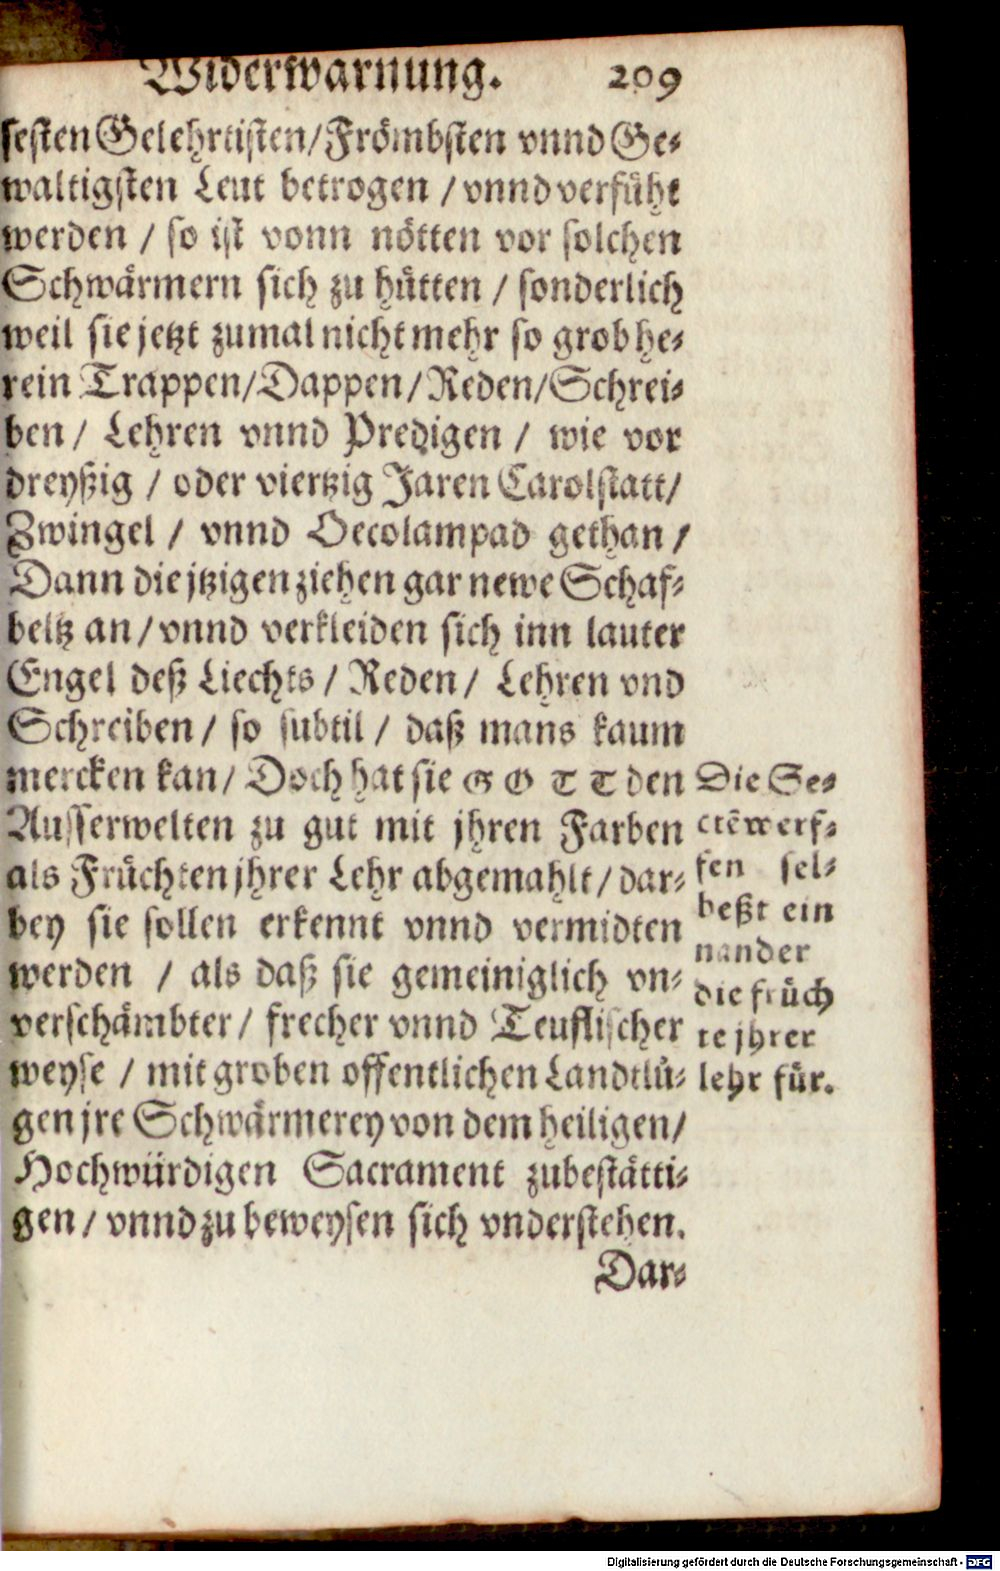 Widerwarnung. 209
sesten Gelehrtisten/Frömbsten vnnd Ge-
waltigsten Leut betrogen / vnnd verfüht
werden / so ist vonn nötten vor solchen
Schwärmern sich zu hütten / sonderlich
weil sie jetzt zumal nicht mehr so grob he-
rein Trappen/Dappen/Reden/Schrei-
ben / Lehren vnnd Predigen / wie vor
dreyßig / oder viertzig Jaren Carolstatt/
Zwingel / vnnd Oecolampad gethan /
Dann die jtzigen ziehen gar newe Schaf-
beltz an / vnnd verkleiden sich inn lauter
Engel deß Liechts / Reden / Lehren vnd
Schreiben / so subtil / daß mans kaum
mercken kan / Doch hat sie GOTT den
Ausserwelten zu gut mit jhren Farben
als Früchten jhrer Lehr abgemahlt / dar-
bey sie sollen erkennt vnnd vermidten
werden / als daß sie gemeiniglich vn-
verschämbter / frecher vnnd Teuflischer
weyse / mit groben offentlichen Landtlü-
gen jre Schwärmerey von dem heiligen /
Hochwürdigen Sacrament zubestätti-
gen / vnnd zu beweysen sich vnderstehen.
Dar-
Die Se-
ctẽ werf-
fen sel-
beßt ein
nander
die früch
te jhrer
lehr für.
Digitalisierung gefördert durch die Deutsche Forschungsgemeinschaft - DFG